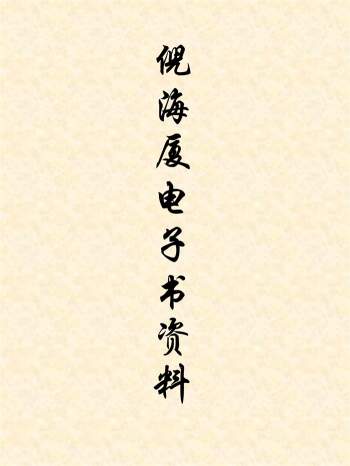 倪海厦电子书资料